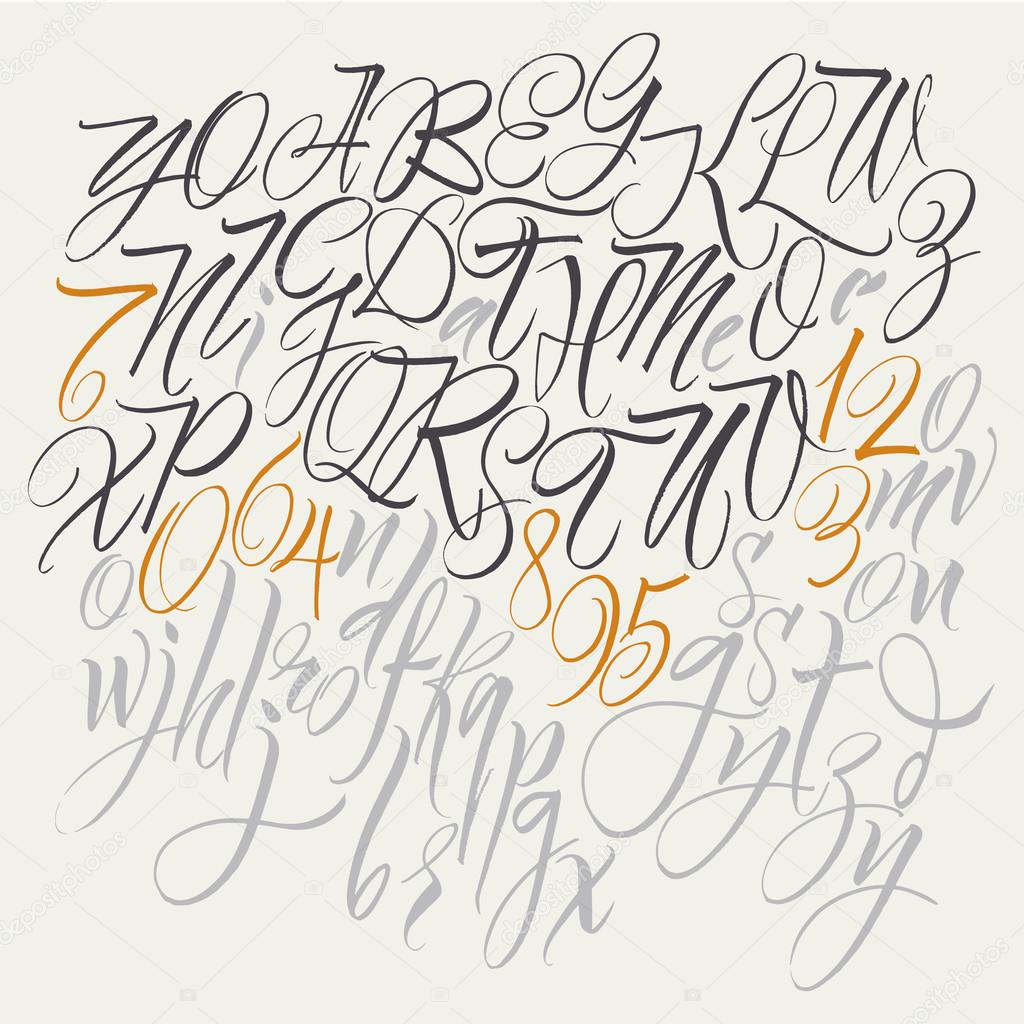 Y O A B E G K L P W
N I G D T H M O Z
i a e c
7 X P Q R S T U W 1 2 o
0 6 4 n 8 3 m v
o 9 5 s o n
w j h l i r o d f k q g s t d
j p y t z d
b r g y
x